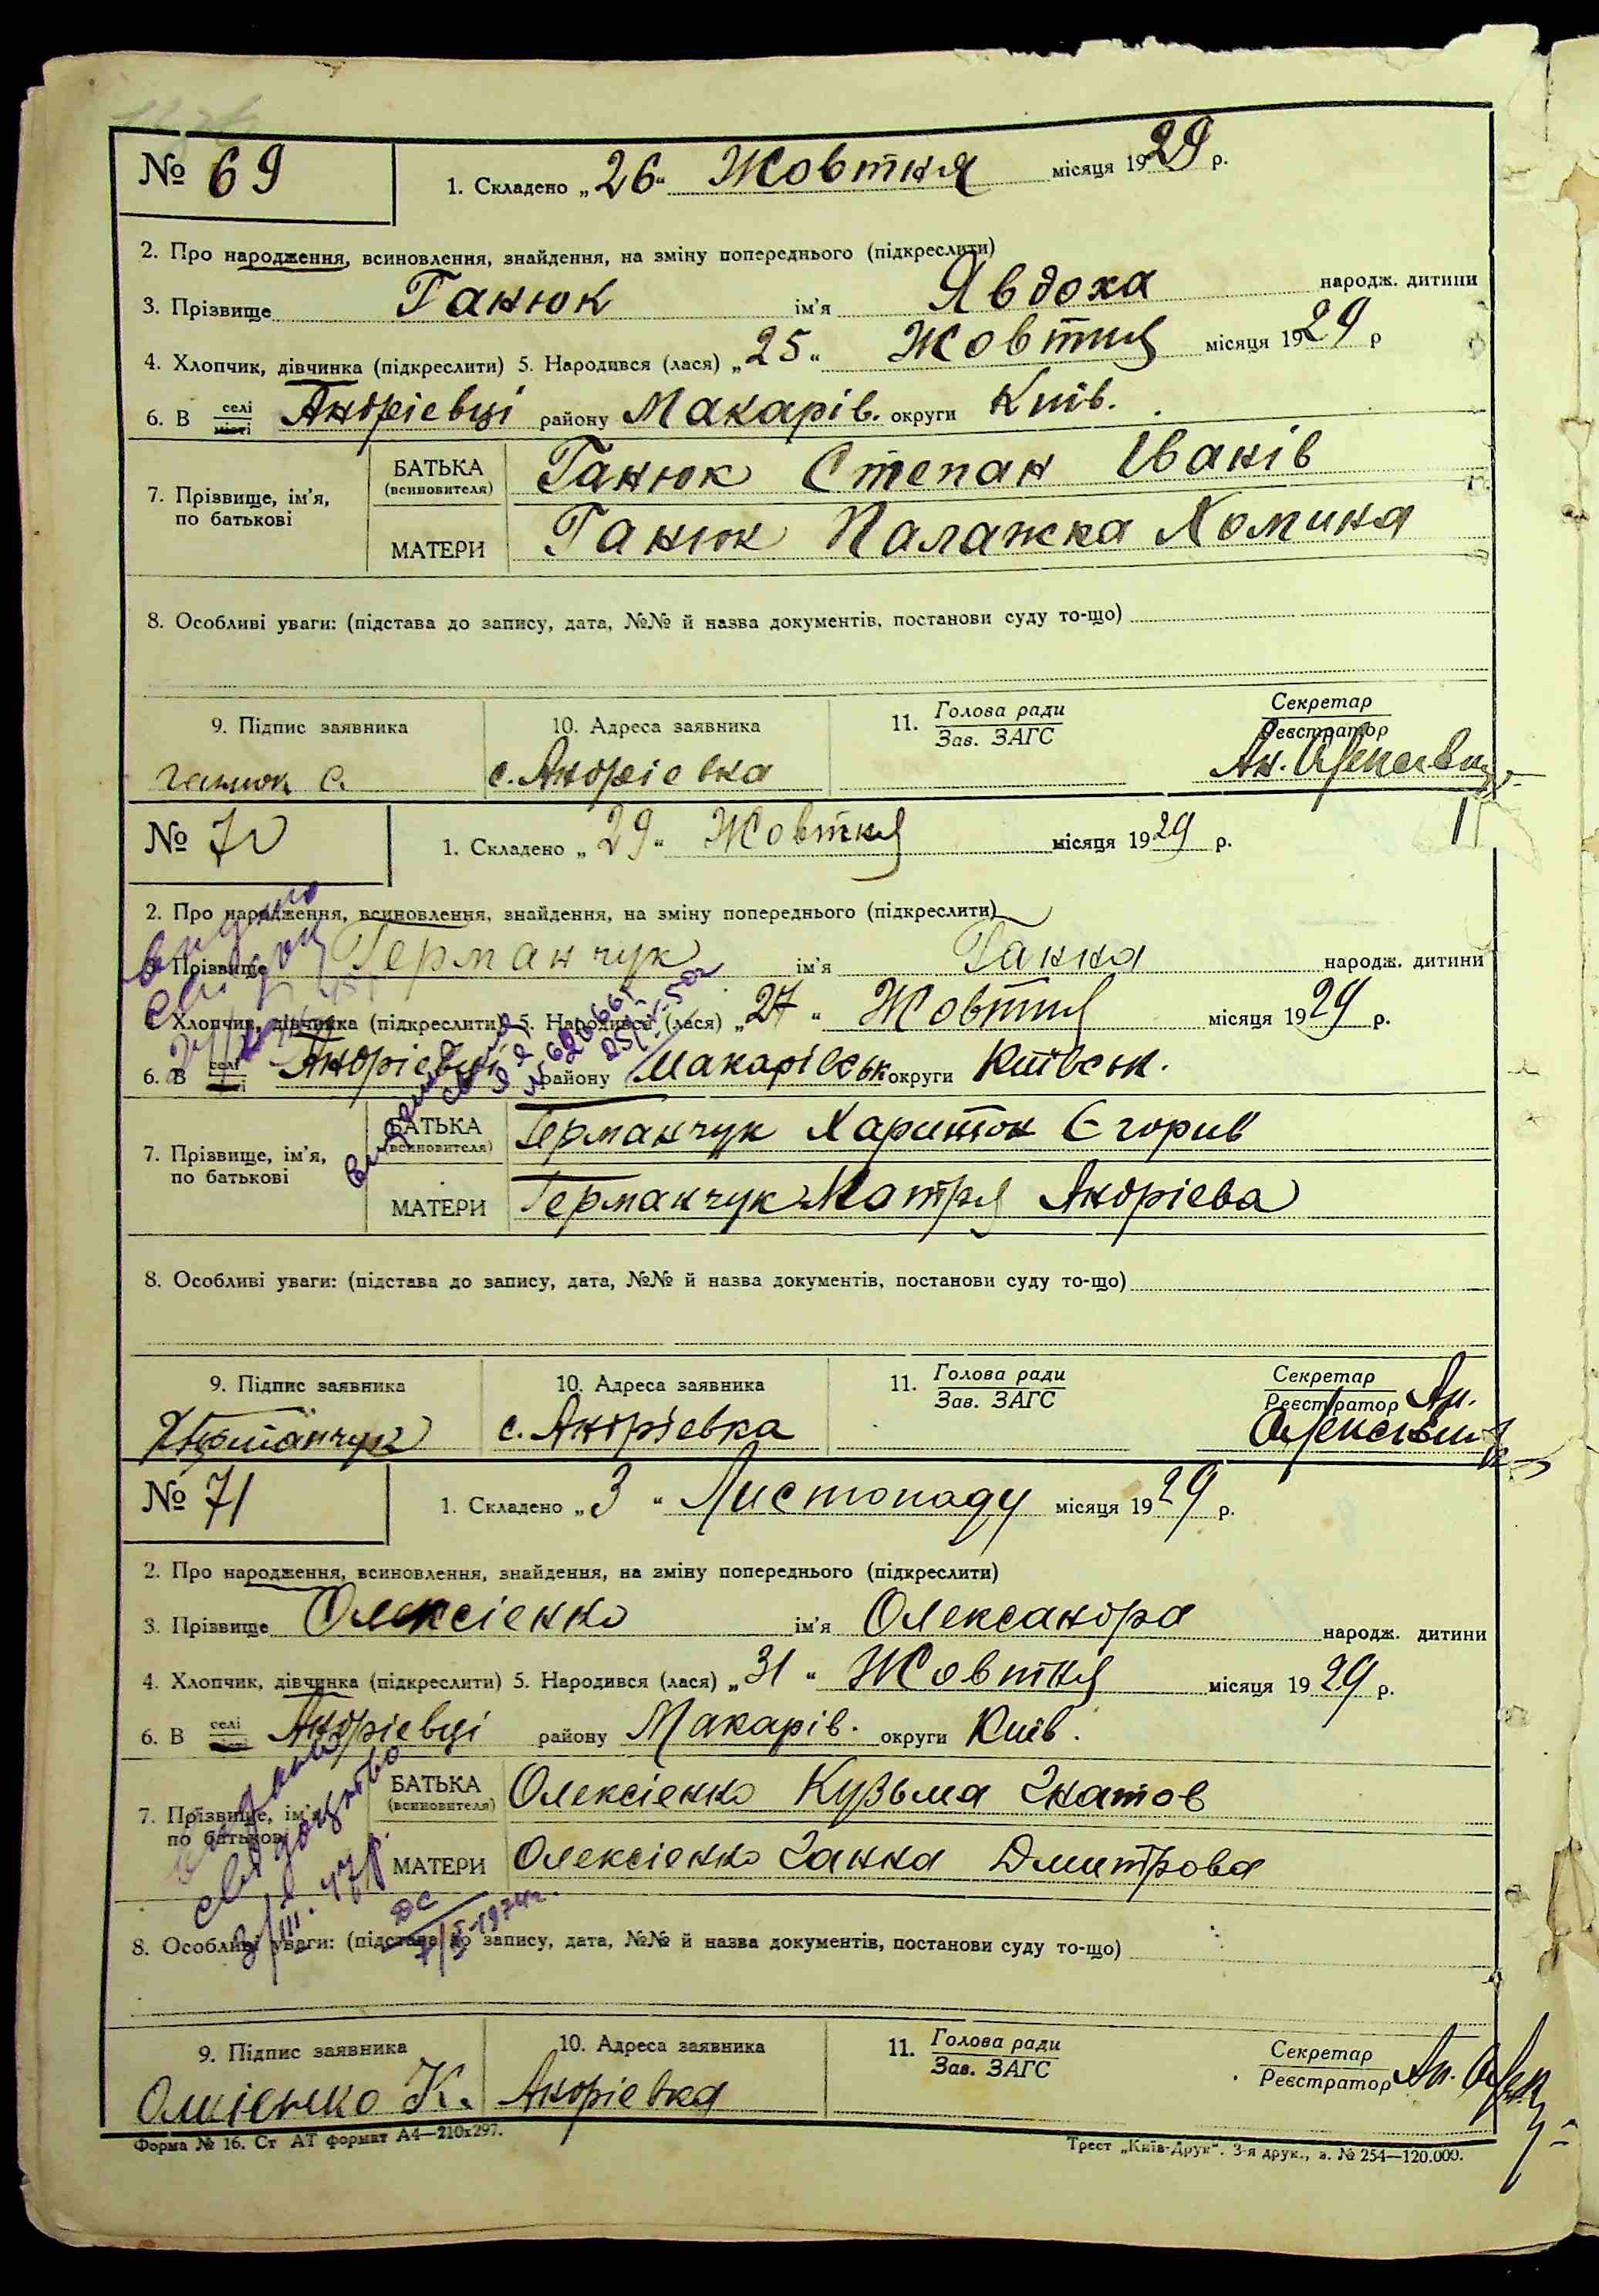 № 69
1. Складено „26“ Жовтня місяця 1929 р.
2. Про народження, всиновлення, знайдення, на зміну попереднього (підкреслити)
3. Прізвище Ганюк ім'я Явдоха народж. дитини
4. Хлопчик, дівчинка (підкреслити) 5. Народився (лася) „25“ Жовтня місяця 1929 р
6. В селі місті Андріевці району Макарів. округи Київ.
7. Прізвище, ім'я, по батькові
БАТЬКА (всиновителя) Ганюк Степан Іванів
МАТЕРИ Ганюк Палажка Хомина
8. Особливі уваги: (підстава до запису, дата, №№ й назва документів, постанови суду то-що)
9. Підпис заявника 10. Адреса заявника 11. Голова ради Зав. ЗАГС Секретар Реєстратор
ганюк С. с. Андріевка Ан.
№ 70
1. Складено „29“ Жовтня місяця 1929 р.
2. Про народження, всиновлення, знайдення, на зміну попереднього (підкреслити)
3. Прізвище Германчук ім'я Ганна народж. дитини
4. Хлопчик, дівчинка (підкреслити) 5. Народився (лася) „27“ Жовтня місяця 1929 р.
6. В селі Андріевці району Макарівськ округи Київськ.
7. Прізвище, ім'я, по батькові
БАТЬКА (всиновителя) Германчук Харитон Єгорив
МАТЕРИ Германчук Мотря Андріева
8. Особливі уваги: (підстава до запису, дата, №№ й назва документів, постанови суду то-що)
9. Підпис заявника 10. Адреса заявника 11. Голова ради Зав. ЗАГС Секретар Реєстратор Ан.
с. Андріевка
№ 71
1. Складено „3“ Листопаду місяця 1929 р.
2. Про народження, всиновлення, знайдення, на зміну попереднього (підкреслити)
3. Прізвище Олексіенко ім'я Олександра народж. дитини
4. Хлопчик, дівчинка (підкреслити) 5. Народився (лася) „31“ Жовтня місяця 1929 р.
6. В селі Андріевці району Макарів. округи Київ.
7. Прізвище, ім'я, по батькові
БАТЬКА (всиновителя) Олексіенко Кузьма Гнатов
МАТЕРИ Олексіенко Ганна Дмитрова
8. Особливі уваги: (підстава до запису, дата, №№ й назва документів, постанови суду то-що)
9. Підпис заявника 10. Адреса заявника 11. Голова ради Зав. ЗАГС Секретар Реєстратор Ан.
К. Андріевка
Форма № 16. Ст АТ формат А4—210х297. Трест „Київ-Друк“. 3-я друк., з. № 254—120.000.